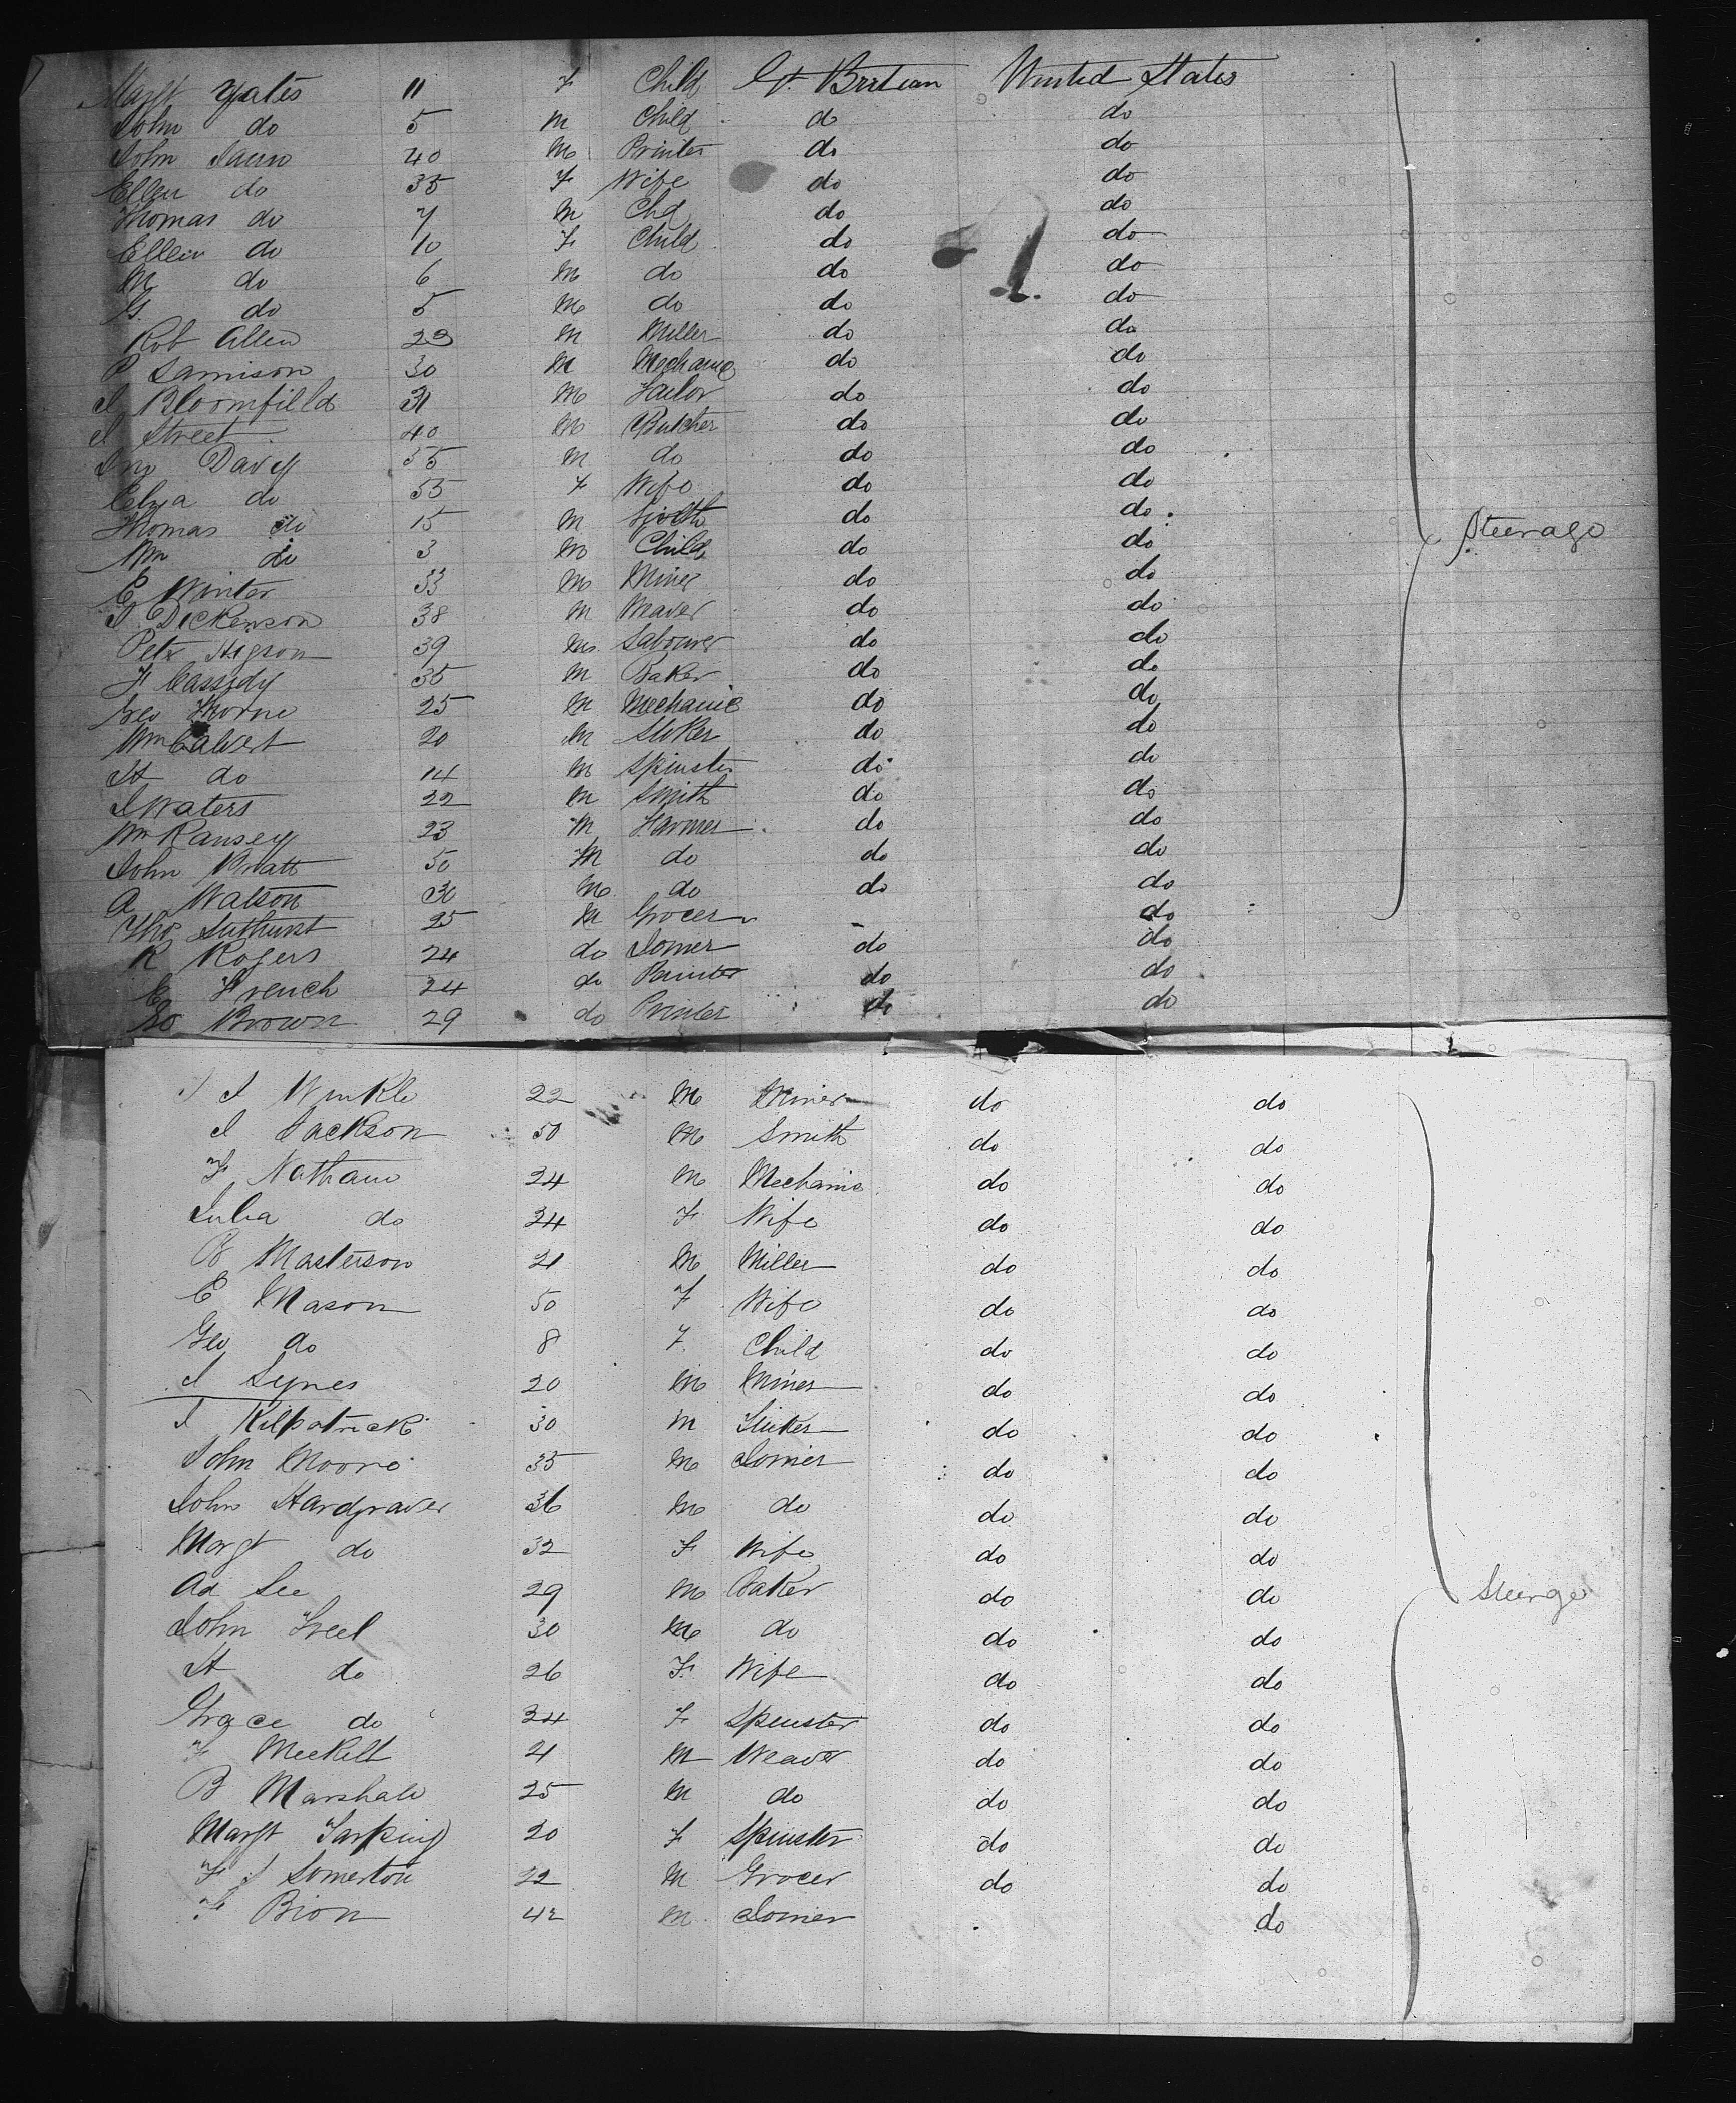 Margt Yates 11 F Child Gt. Britian United States
John do 5 M Child do do
John 40 M Printer do do
Ellen do 35 F Wife do do
Thomas do 7 M Chd do do
Ellen do 10 F Child do do
M do 6 M do do do
G. do 5 M do do do
Rob Allen 23 M Miller do do
P Jamison 30 M Mechanic do do
J Bloomfilld 31 M Tailor do do
J Street 40 M Butcher do do
Jno Davy 35 M do do do
Eliza do 55 F Wife do do
Thomas do 15 M do do
Wm do 3 M Child do do
E Winter 33 M Miner do do Steerage
J Dickenson 38 M Weaver do do
Petr Higson 39 M Labourer do do
H Cassidy 35 M Baker do do
Geo Thorne 25 M Mechanic do do
Wm Calvert 20 M Stoker do do
H do 14 M Spinster do do
J Waters 22 M Smith do do
Wm Ransey 23 M Farmer do do
John Pratt 50 M do do do
A Watson 30 M do do do
Thos 25 M Grocer do
R Rogers 24 do Joiner do do
E French 24 do Painter do do
Go Brown 29 do Printer do do
J J Winkle 22 M Miner do do
J Jackson 50 M Smith do do
F Nathans 24 M Mechanic do do
Julia do 24 F Wife do do
B Masterson 21 M Miller do do
E Mason 50 F Wife do do
Geo do 8 F. Child do do
J Lynes 20 M Miner do do
J Kilpatrick 30 M do do
John Moore 35 M Joiner do do
John Hardgraves 36 M do do do
Margt do 32 F Wife do do
Ad Lee 29 M Baker do do Steerge
John Freel 30 M do do do
H do 26 F. Wife do do
Grace do 24 F Spinster do do
F 21 M Weaver do do
B Marshall 25 M do do do
Margt 20 F Spinster do do
F J Somerton 22 M Grocer do do
F Bion 42 M Joiner do